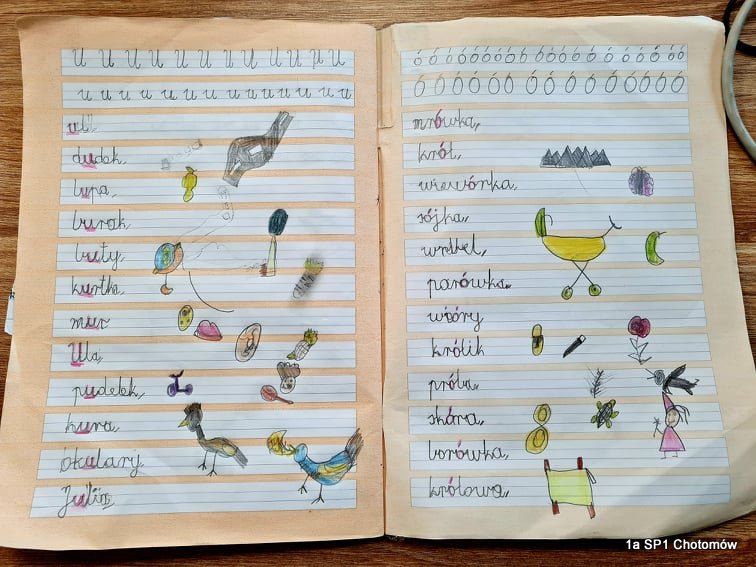 U U U U U U U U U U U U
u u u u u u u u u u u u u u
ul,
dudek,
lupa,
burak,
buty,
kurtka,
mur,
Ula,
pudełek,
kura,
okulary,
Julia,
ó ó ó ó ó ó ó ó ó ó ó ó ó ó ó ó ó ó ó ó
Ó Ó Ó Ó Ó Ó Ó Ó Ó Ó Ó Ó Ó Ó Ó Ó
mrówka,
król,
wiewiórka,
sójka,
wróbel,
parówka,
wióry
królik
próba,
skóra,
borówka,
królowa,
1a SP1 Chotomów